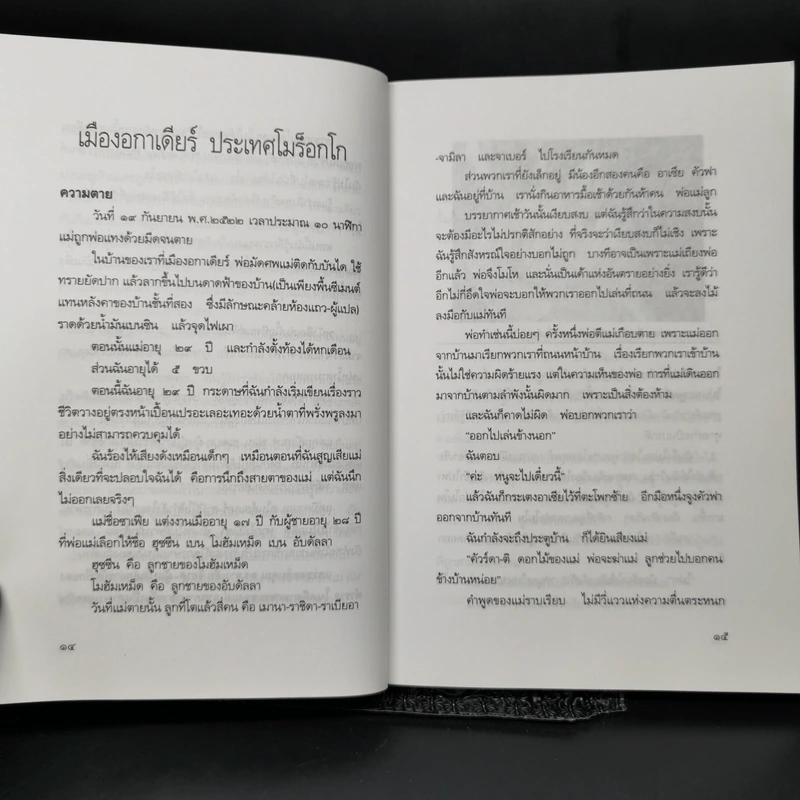 เมืองอกาเดียร์ ประเทศโมร็อกโก
ความตาย
วันที่ ๑๙ กันยายน พ.ศ.๒๕๒๒ เวลาประมาณ ๑๐ นาฬิกา
แม่ถูกพ่อแทงด้วยมีดจนตาย
ในบ้านของเราที่เมืองอกาเดียร์ พ่อมัดศพแม่ติดกับบันได ใช้
ทรายยัดปาก แล้วลากขึ้นไปบนดาดฟ้าของบ้าน(เป็นเพียงพื้นซีเมนต์
แทนหลังคาของบ้านชั้นที่สอง ซึ่งมีลักษณะคล้ายห้องแถว-ผู้แปล)
ราดด้วยน้ำมันเบนซิน แล้วจุดไฟเผา
ตอนนั้นแม่อายุ ๒๙ ปี และกำลังตั้งท้องได้หกเดือน
ส่วนฉันอายุได้ ๕ ขวบ
ตอนนี้ฉันอายุ ๒๙ ปี กระดาษที่ฉันกำลังเริ่มเขียนเรื่องราว
ชีวิตวางอยู่ตรงหน้าเปื้อนเปรอะเลอะเทอะด้วยน้ำตาที่พรั่งพรูลงมา
อย่างไม่สามารถควบคุมได้
ฉันร้องไห้เสียงดังเหมือนเด็กๆ เหมือนตอนที่ฉันสูญเสียแม่
สิ่งเดียวที่จะปลอบใจฉันได้ คือการนึกถึงสายตาของแม่ แต่ฉันนึก
ไม่ออกเลยจริงๆ
แม่ชื่อซาเฟีย แต่งงานเมื่ออายุ ๑๗ ปี กับผู้ชายอายุ ๒๘ ปี
ที่พ่อแม่เลือกให้ชื่อ ฮุซซีน เบน โมฮัมเหม็ด เบน อับดัลลา
ฮุซซีน คือ ลูกชายของโมฮัมเหม็ด
โมฮัมเหม็ด คือ ลูกชายของอับดัลลา
วันที่แม่ตายนั้น ลูกที่โตแล้วสี่คน คือ เมานา-ราชิดา-ราเบียอา
๑๔
-จามิลา และจาเบอร์ ไปโรงเรียนกันหมด
ส่วนพวกเราที่ยังเล็กอยู่ มีน้องอีกสองคนคือ อาเซีย คัวฟา
และฉันอยู่ที่บ้าน เรานั่งกินอาหารมื้อเช้าด้วยกันห้าคน พ่อแม่ลูก
บรรยากาศเช้าวันนั้นเงียบสงบ แต่ฉันรู้สึกว่าในความสงบนั้น
จะต้องมีอะไรไม่ปรกติสักอย่าง ที่จริงจะว่าเงียบสงบก็ไม่เชิง เพราะ
ฉันรู้สึกสังหรณ์ใจอย่างบอกไม่ถูก บางทีอาจเป็นเพราะแม่เถียงพ่อ
อีกแล้ว พ่อจึงโมโห และนั่นเป็นเค้าแห่งอันตรายอย่างยิ่ง เรารู้ดีว่า
อีกไม่กี่อึดใจพ่อจะบอกให้พวกเราออกไปเล่นที่ถนน แล้วจะลงไม้
ลงมือกับแม่ทันที
พ่อทำเช่นนี้บ่อยๆ ครั้งหนึ่งพ่อตีแม่เกือบตาย เพราะแม่ออก
จากบ้านมาเรียกพวกเราที่ถนนหน้าบ้าน เรื่องเรียกพวกเราเข้าบ้าน
นั้นไม่ใช่ความผิดร้ายแรง แต่ในความเห็นของพ่อ การที่แม่เดินออก
มาจากบ้านตามลำพังนั้นผิดมาก เพราะเป็นสิ่งต้องห้าม
และฉันก็คาดไม่ผิด พ่อบอกพวกเราว่า
"ออกไปเล่นข้างนอก"
ฉันตอบ
"ค่ะ หนูจะไปเดี๋ยวนี้"
แล้วฉันก็กระเตงอาเซียไว้ที่ตะโพกซ้าย อีกมือหนึ่งจูงคัวฟา
ออกจากบ้านทันที
ฉันกำลังจะถึงประตูบ้าน ก็ได้ยินเสียงแม่
"คัวร์ดา-ติ ดอกไม้ของแม่ พ่อจะฆ่าแม่ ลูกช่วยไปบอกคน
ข้างบ้านหน่อย"
คำพูดของแม่ราบเรียบ ไม่มีวี่แววแห่งความตื่นตระหนก
๑๕